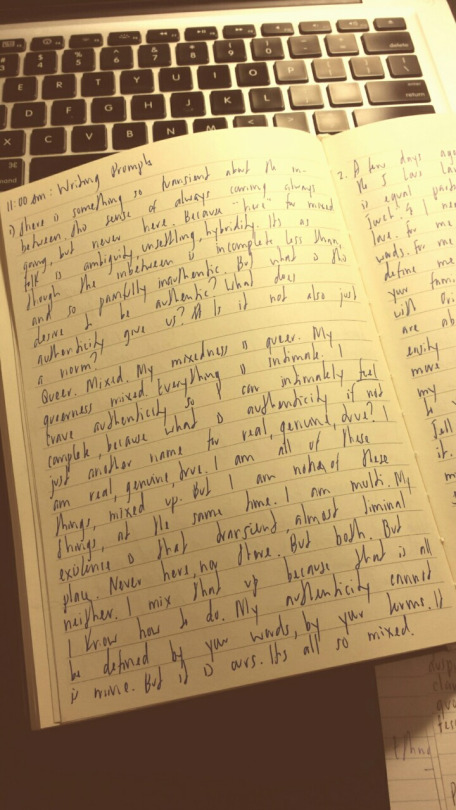 11:00 am: Writing Prompts
1) there is something so transient about the in-
between. this sense of always coming always
going, but never here. Because "here" for mixed
folk is ambiguity, unsettling, hybridity. Its as
though the inbetween is incomplete, less than,
and so painfully inauthentic. But what is this
desire to be authentic? What does
authenticity give us? Is it not also just
a norm?
Queer. Mixed. My mixedness is queer. My
queerness mixed. Everything is intimate. I
crave authenticity so I can intimately feel
complete, because what is authenticity if not
just another name for real, genuine, true? I
am real, genuine, true. I am all of these
things, mixed up. But I am not of these
things, at the same time. I am multi. My
existence is that transient, almost liminal
place. Never here, nor there. But both. But
neither. I mix that up because that is all
I know how to do. My authenticity cannot
be defined by your words, by your terms. It
is mine. But it is ours. Its all so mixed.
2. A few days ago
the 5 Love Lan
is equal parts
love. for me
words. for me
define me
your fami
with
are ab
ensity
more
my
fell
it.
delete
return
E R T Y U I O P
D F G H J K L
X C V B N M